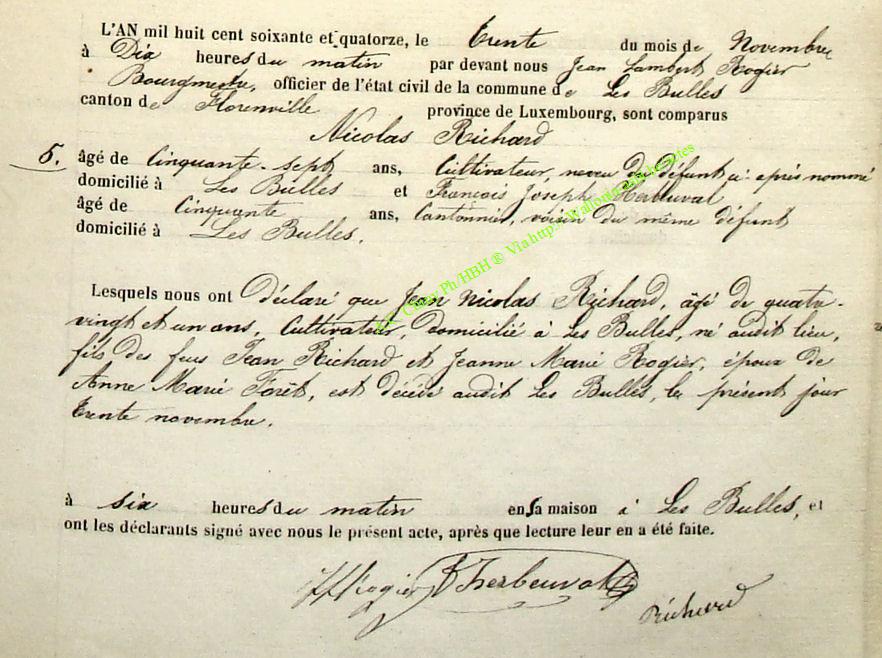 L'AN mil huit cent soixante et quatorze, le Trente du mois de Novembre
à Dix heures du matin par devant nous Jean Lambert Rogier
Bourgmestre, officier de l'état civil de la commune de Les Bulles
canton de Florenville province de Luxembourg, sont comparus
Nicolas Richard
5. âgé de Cinquante-sept ans, Cultivateur, neveu du défunt ci-après nommé
domicilié à Les Bulles et François Joseph Herbeuval
âgé de Cinquante ans, Cantonnier, voisin du même défunt
domicilié à Les Bulles.
Lesquels nous ont Déclaré que Jean Nicolas Richard, âgé de quatre-
vingt et un ans, Cultivateur, Domicilié à Les Bulles, né audit lieu,
fils des feus Jean Richard et Jeanne Marie Rogier, époux de
Anne Marie Forêt, est décédé audit Les Bulles, le présent jour
trente novembre.
à six heures du matin en sa maison à Les Bulles, et
ont les déclarants signé avec nous le présent acte, après que lecture leur en a été faite.
JLRogier Herbeuval
Richard